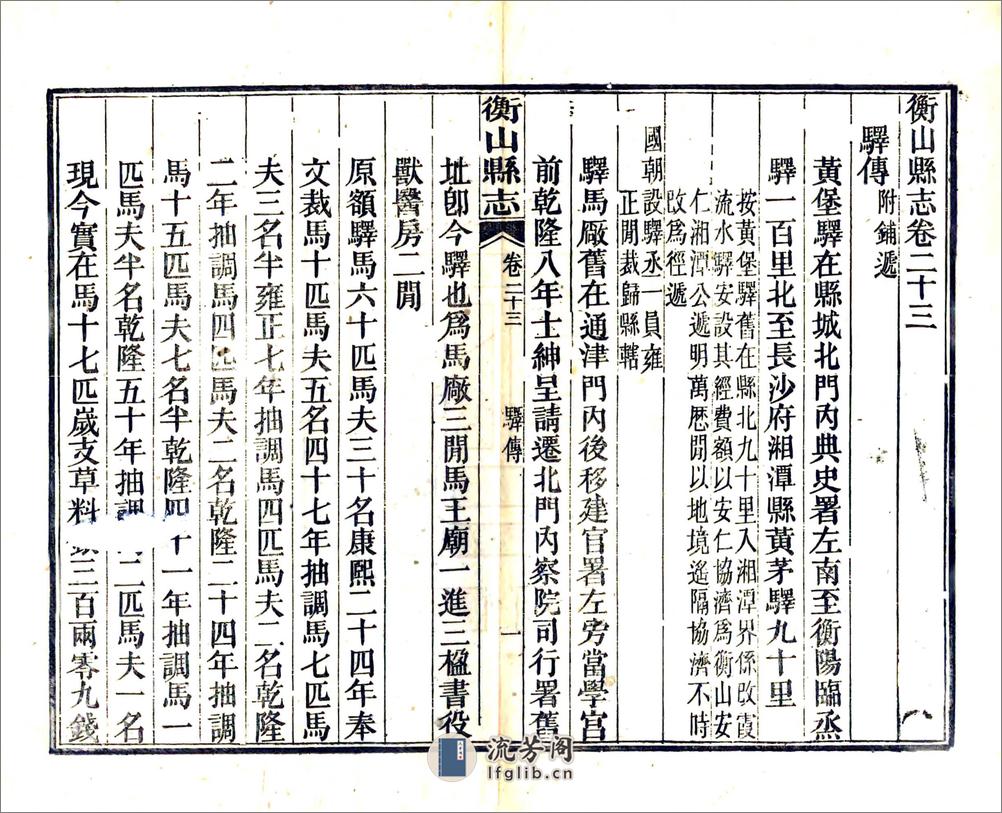 衡山縣志卷二十三
驛傳 附鋪遞
黃堡驛在縣城北門內典史署左南至衡陽臨烝
驛一百里北至長沙府湘潭縣黃茅驛九十里
按黃堡驛舊在縣北九十里入湘潭界係改霞
流水驛安設其經費額以安仁協濟爲衡山安
仁湘潭公遞明萬厯閒以地境遙隔協濟不時
改爲徑遞
國朝設驛丞一員雍
正閒裁歸縣轄
驛馬厰舊在通津門內後移建官署左旁當學宮
前乾隆八年士紳呈請遷北門內察院司行署舊
衡山縣志 卷二十三 驛傳 一
址卽今驛也爲馬廠三閒馬王廟一進三楹書役
獸醫房二閒
原額驛馬六十匹馬夫三十名康熙二十四年奉
文裁馬十匹馬夫五名四十七年抽調馬七匹馬
夫三名半雍正七年抽調馬四匹馬夫二名乾隆
二年抽調馬四匹馬夫二名乾隆二十四年抽調
馬十五匹馬夫七名半乾隆四十一年抽調馬一
匹馬夫半名乾隆五十年抽調二匹馬夫一名
現今實在馬十七匹歲支草料三百兩零九錢
流芳阁
lfglib.cn